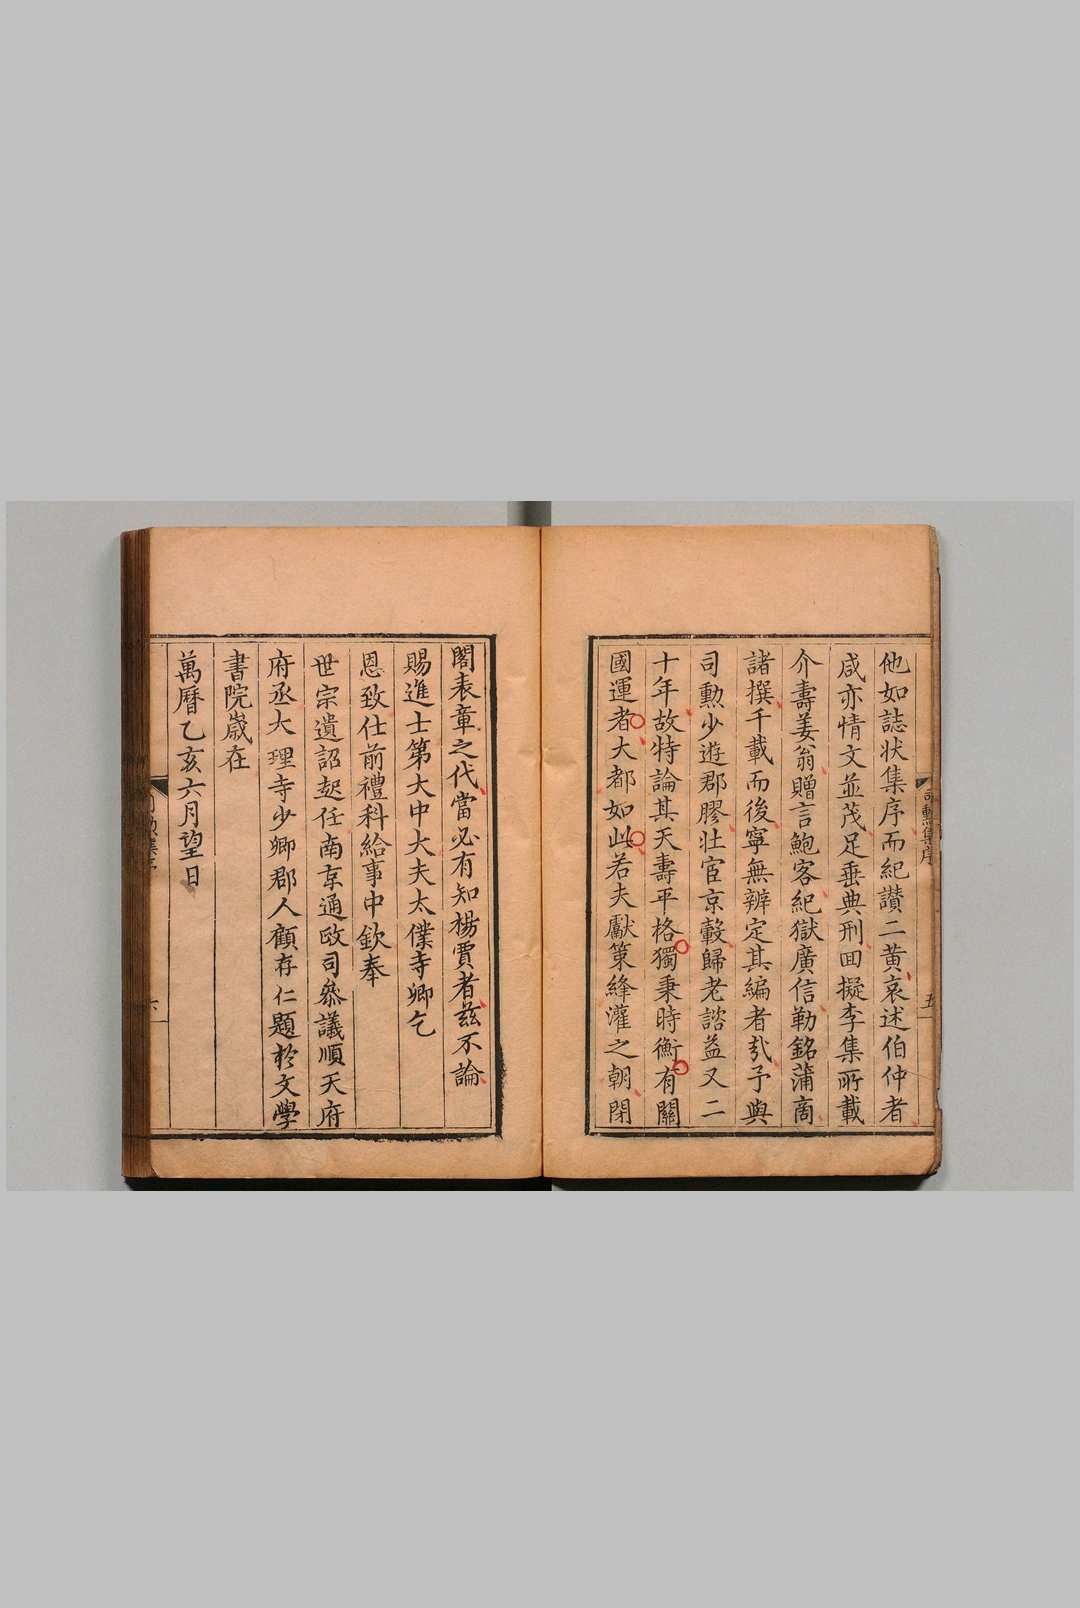 司勲集序
五
他如誌状集序而紀讃二黄哀述伯仲者
咸亦情文並茂足垂典刑囬擬李集所載
介壽姜翁贈言鮑客紀獄廣信勒銘蒲啇
諸撰千載而後寧無辨定其編者㢤予與
司勲少遊郡膠壮宦京轂歸老諮益又二
十年故特論其天壽平格獨秉時衡有關
國運者大都如此若夫獻策絳灌之朝閉
閣表章之代當必有知楊賈者兹不論
賜進士第大中大夫太僕寺卿乞
恩致仕前禮科給事中欽奉
世宗遺詔起任南京通政司叅議順天府
府丞大理寺少卿郡人顧存仁題於文學
書院歲在
萬曆乙亥六月望日
六